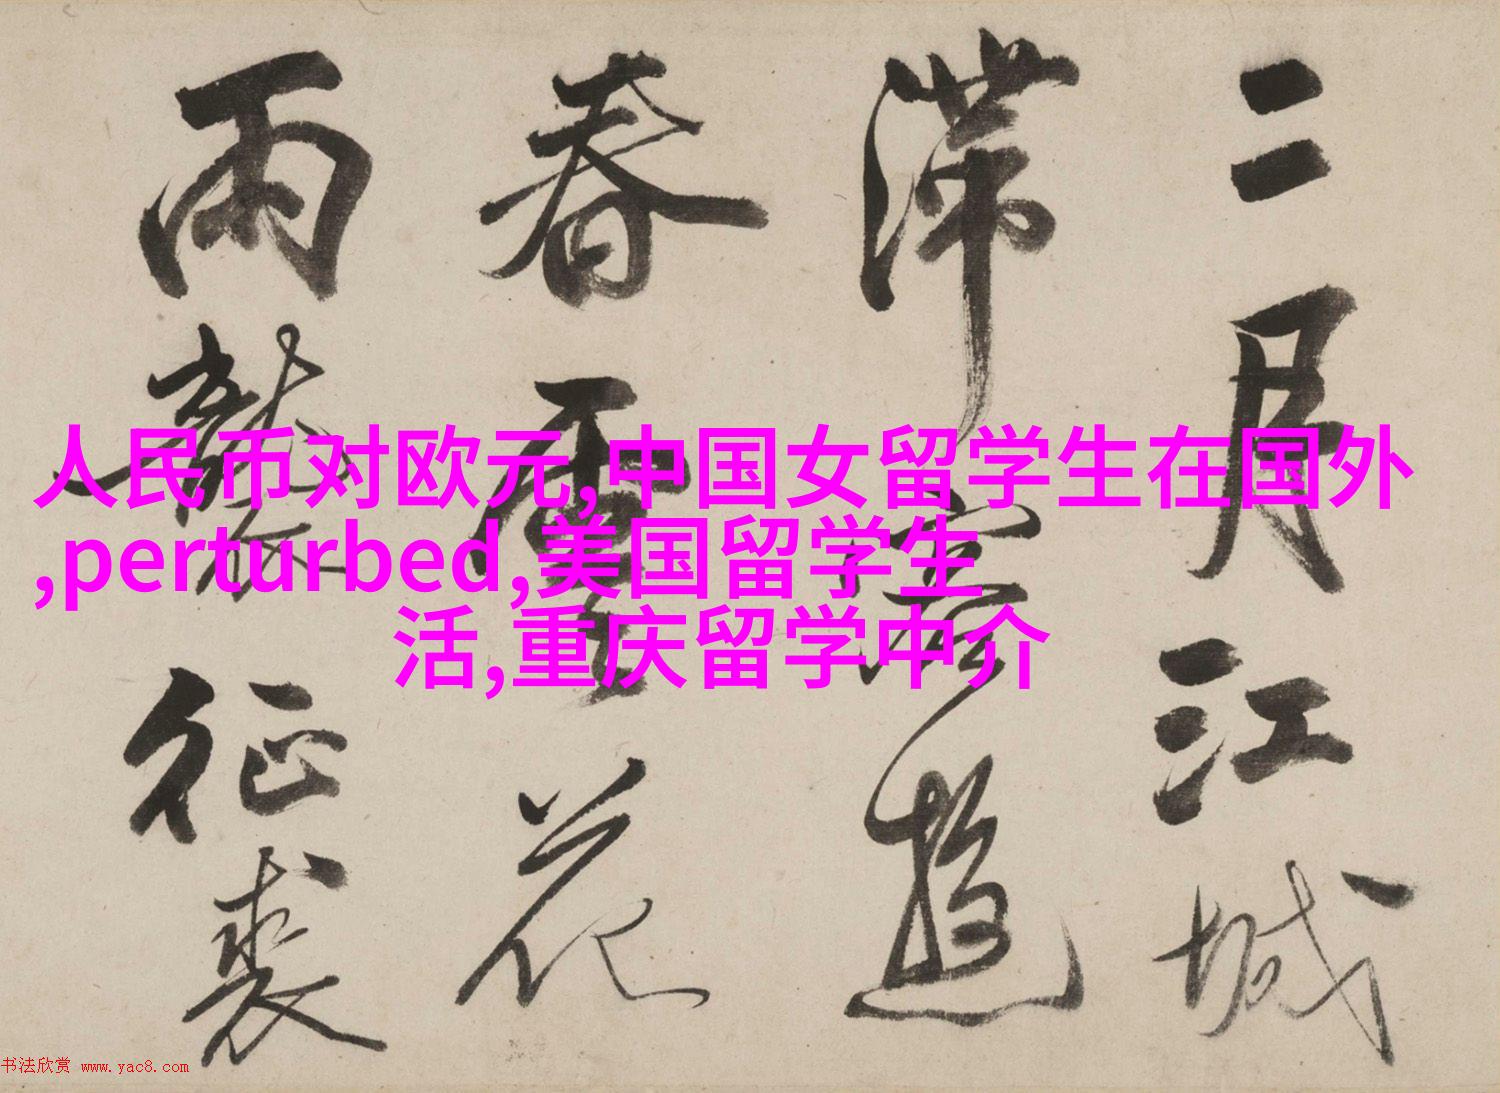 人民币对欧元,中国女留学生在国外
,perturbed,美国留学生
活,重庆留学中介
二月江城
滞遊
春雪花
雨征裘
书法欣赏 www.yac8.com